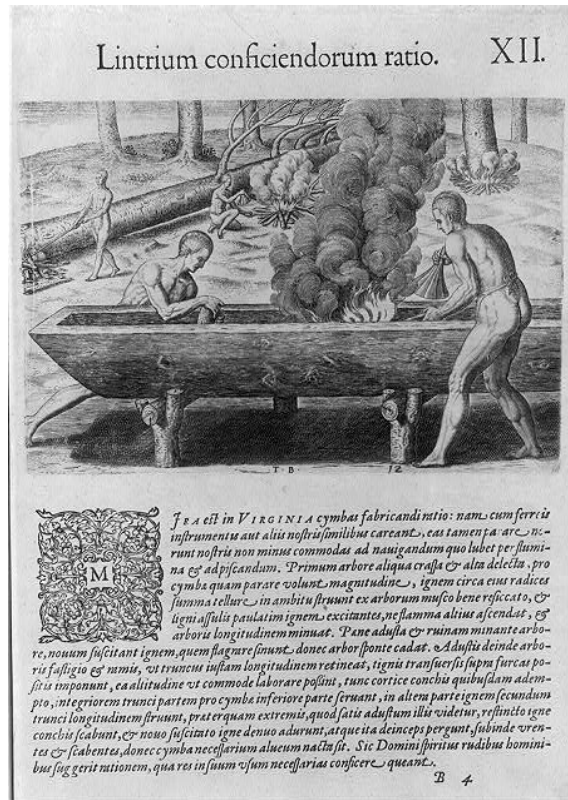 Lintrium conficiendorum ratio. XII.
T. B. 12
MIRA est in VIRGINIA cymbas fabricandi ratio: nam cum ferreis
instrumentis aut aliis nostris similibus careant, eas tamen parare no-
runt nostris non minus commodas ad nauigandum quo lubet per flumi-
na & ad piscandum. Primum arbore aliqua crassa & alta delecta, pro
cymbæ quam parare volunt magnitudine, ignem circa eius radices
summa tellure in ambitu struunt ex arborum musco bene resiccato, &
ligni assulis paulatim ignem excitantes, ne flamma altius ascendat, &
arboris longitudinem minuat. Pæne adusta & ruinam minante arbo-
re, nouum suscitant ignem, quem flagrare sinunt donec arbor sponte cadat. Adustis deinde arbo-
ris fastigio & ramis, vt truncus iustam longitudinem retineat, tignis transuersis supra furcas po-
sitis imponunt, ea altitudine vt commode laborare possint, tunc cortice conchis quibusdam adem-
pto, integriorem trunci partem pro cymbæ inferiore parte seruant, in altera parte ignem secundum
trunci longitudinem struunt, præterquam extremis, quod satis adustum illis videtur, restincto igne
conchis scabunt, & nouo suscitato igne denuo adurunt, atque ita deinceps pergunt, subinde vren-
tes & scabentes, donec cymba necessarium alueum nacta sit. Sic Domini spiritus rudibus homini-
bus suggerit rationem, qua res in suum vsum necessarias conficere queant.
B 4